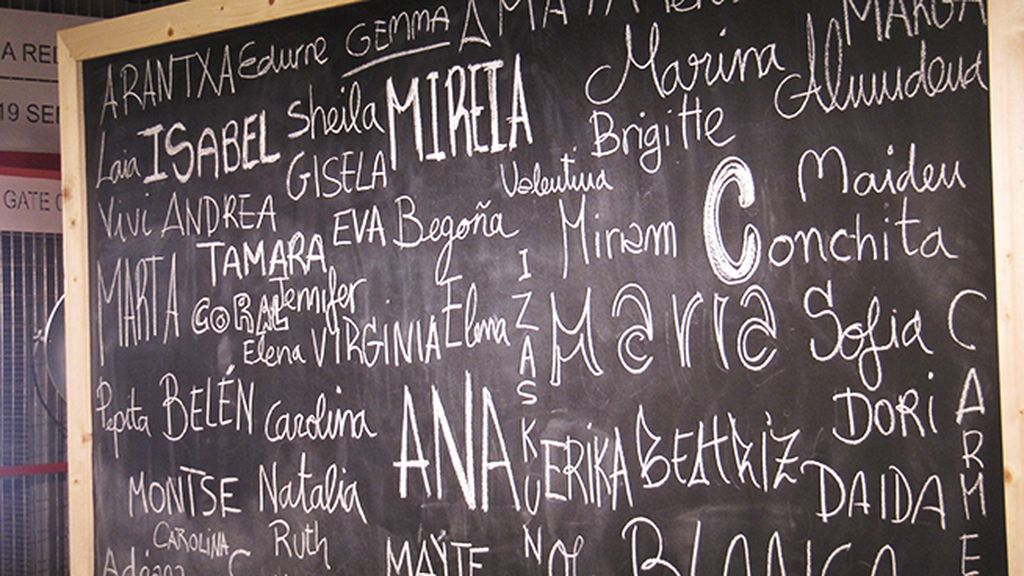 ARANTXA Edurne GEMMA AMAYA MARGA
Laia ISABEL Sheila MIREIA Marina Almudena
GISELA Brigitte
Valentina Maiden
Vivi ANDREA EVA Begoña Miriam Conchita
MARTA TAMARA
CORAL Jennifer Elena IZASKUN María Sofia CARME
Elena VIRGINIA
Pepita BELÉN Carolina ANA ERIKA BEATRIZ DORI
MONTSE Natalia DAIDA
CAROLINA Ruth MAYTE BLANCA
A RE
19 SE
GATE